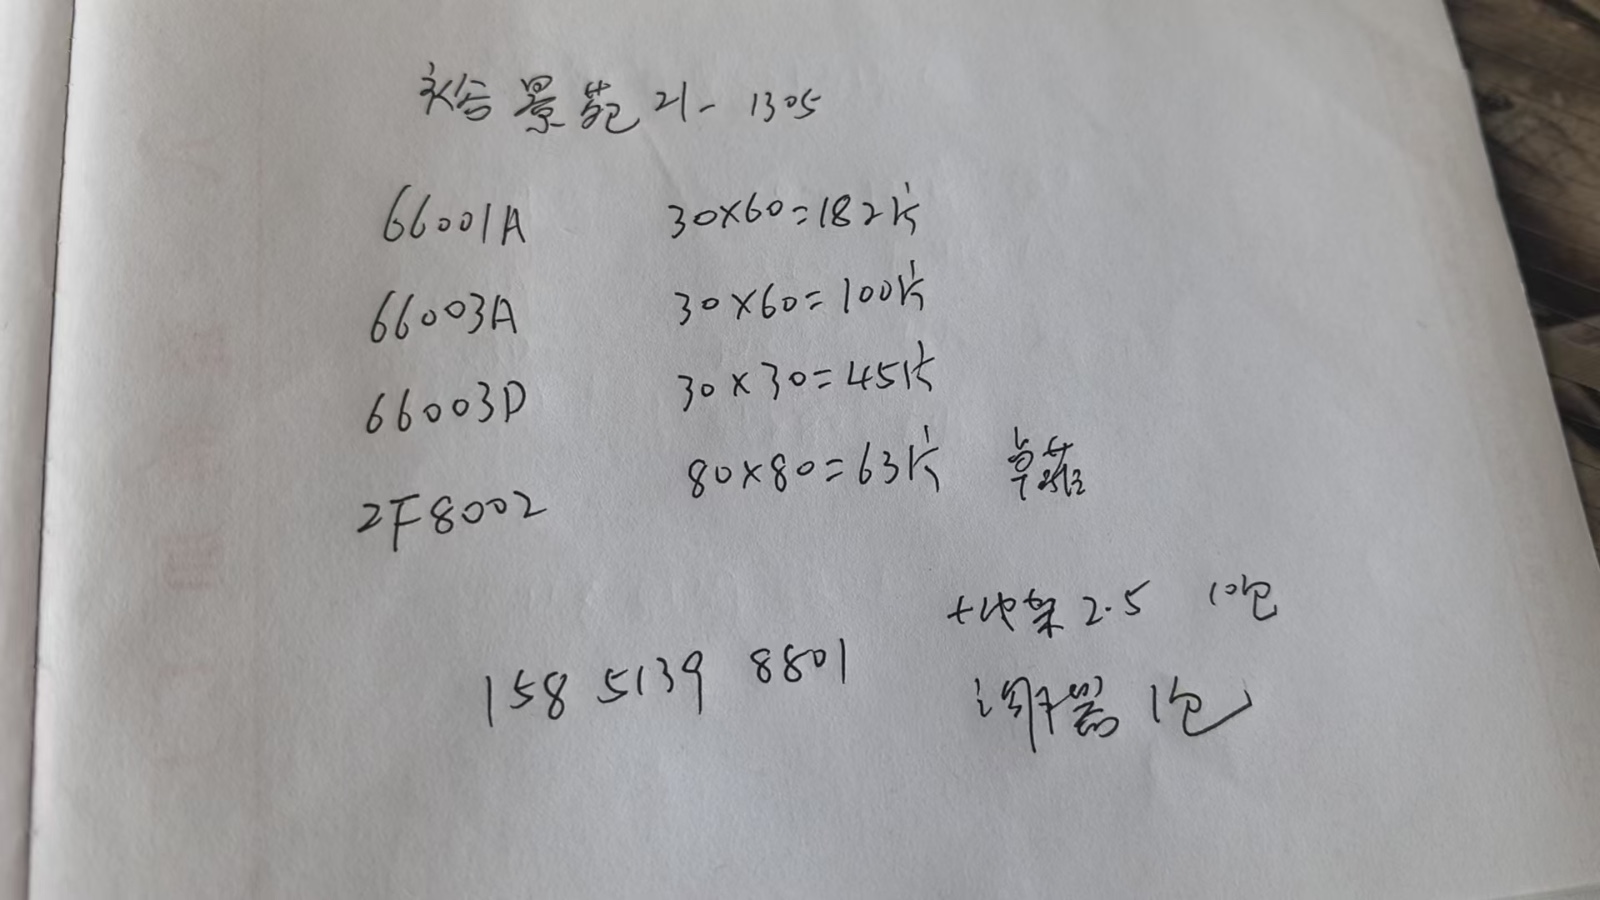 裕景苑 21-1305
66001A 30×60=182片
66003A 30×60=100片
66003D 30×30=45片
2F8002 80×80=63片
十字架 2.5 10包
158 5139 8801
1包